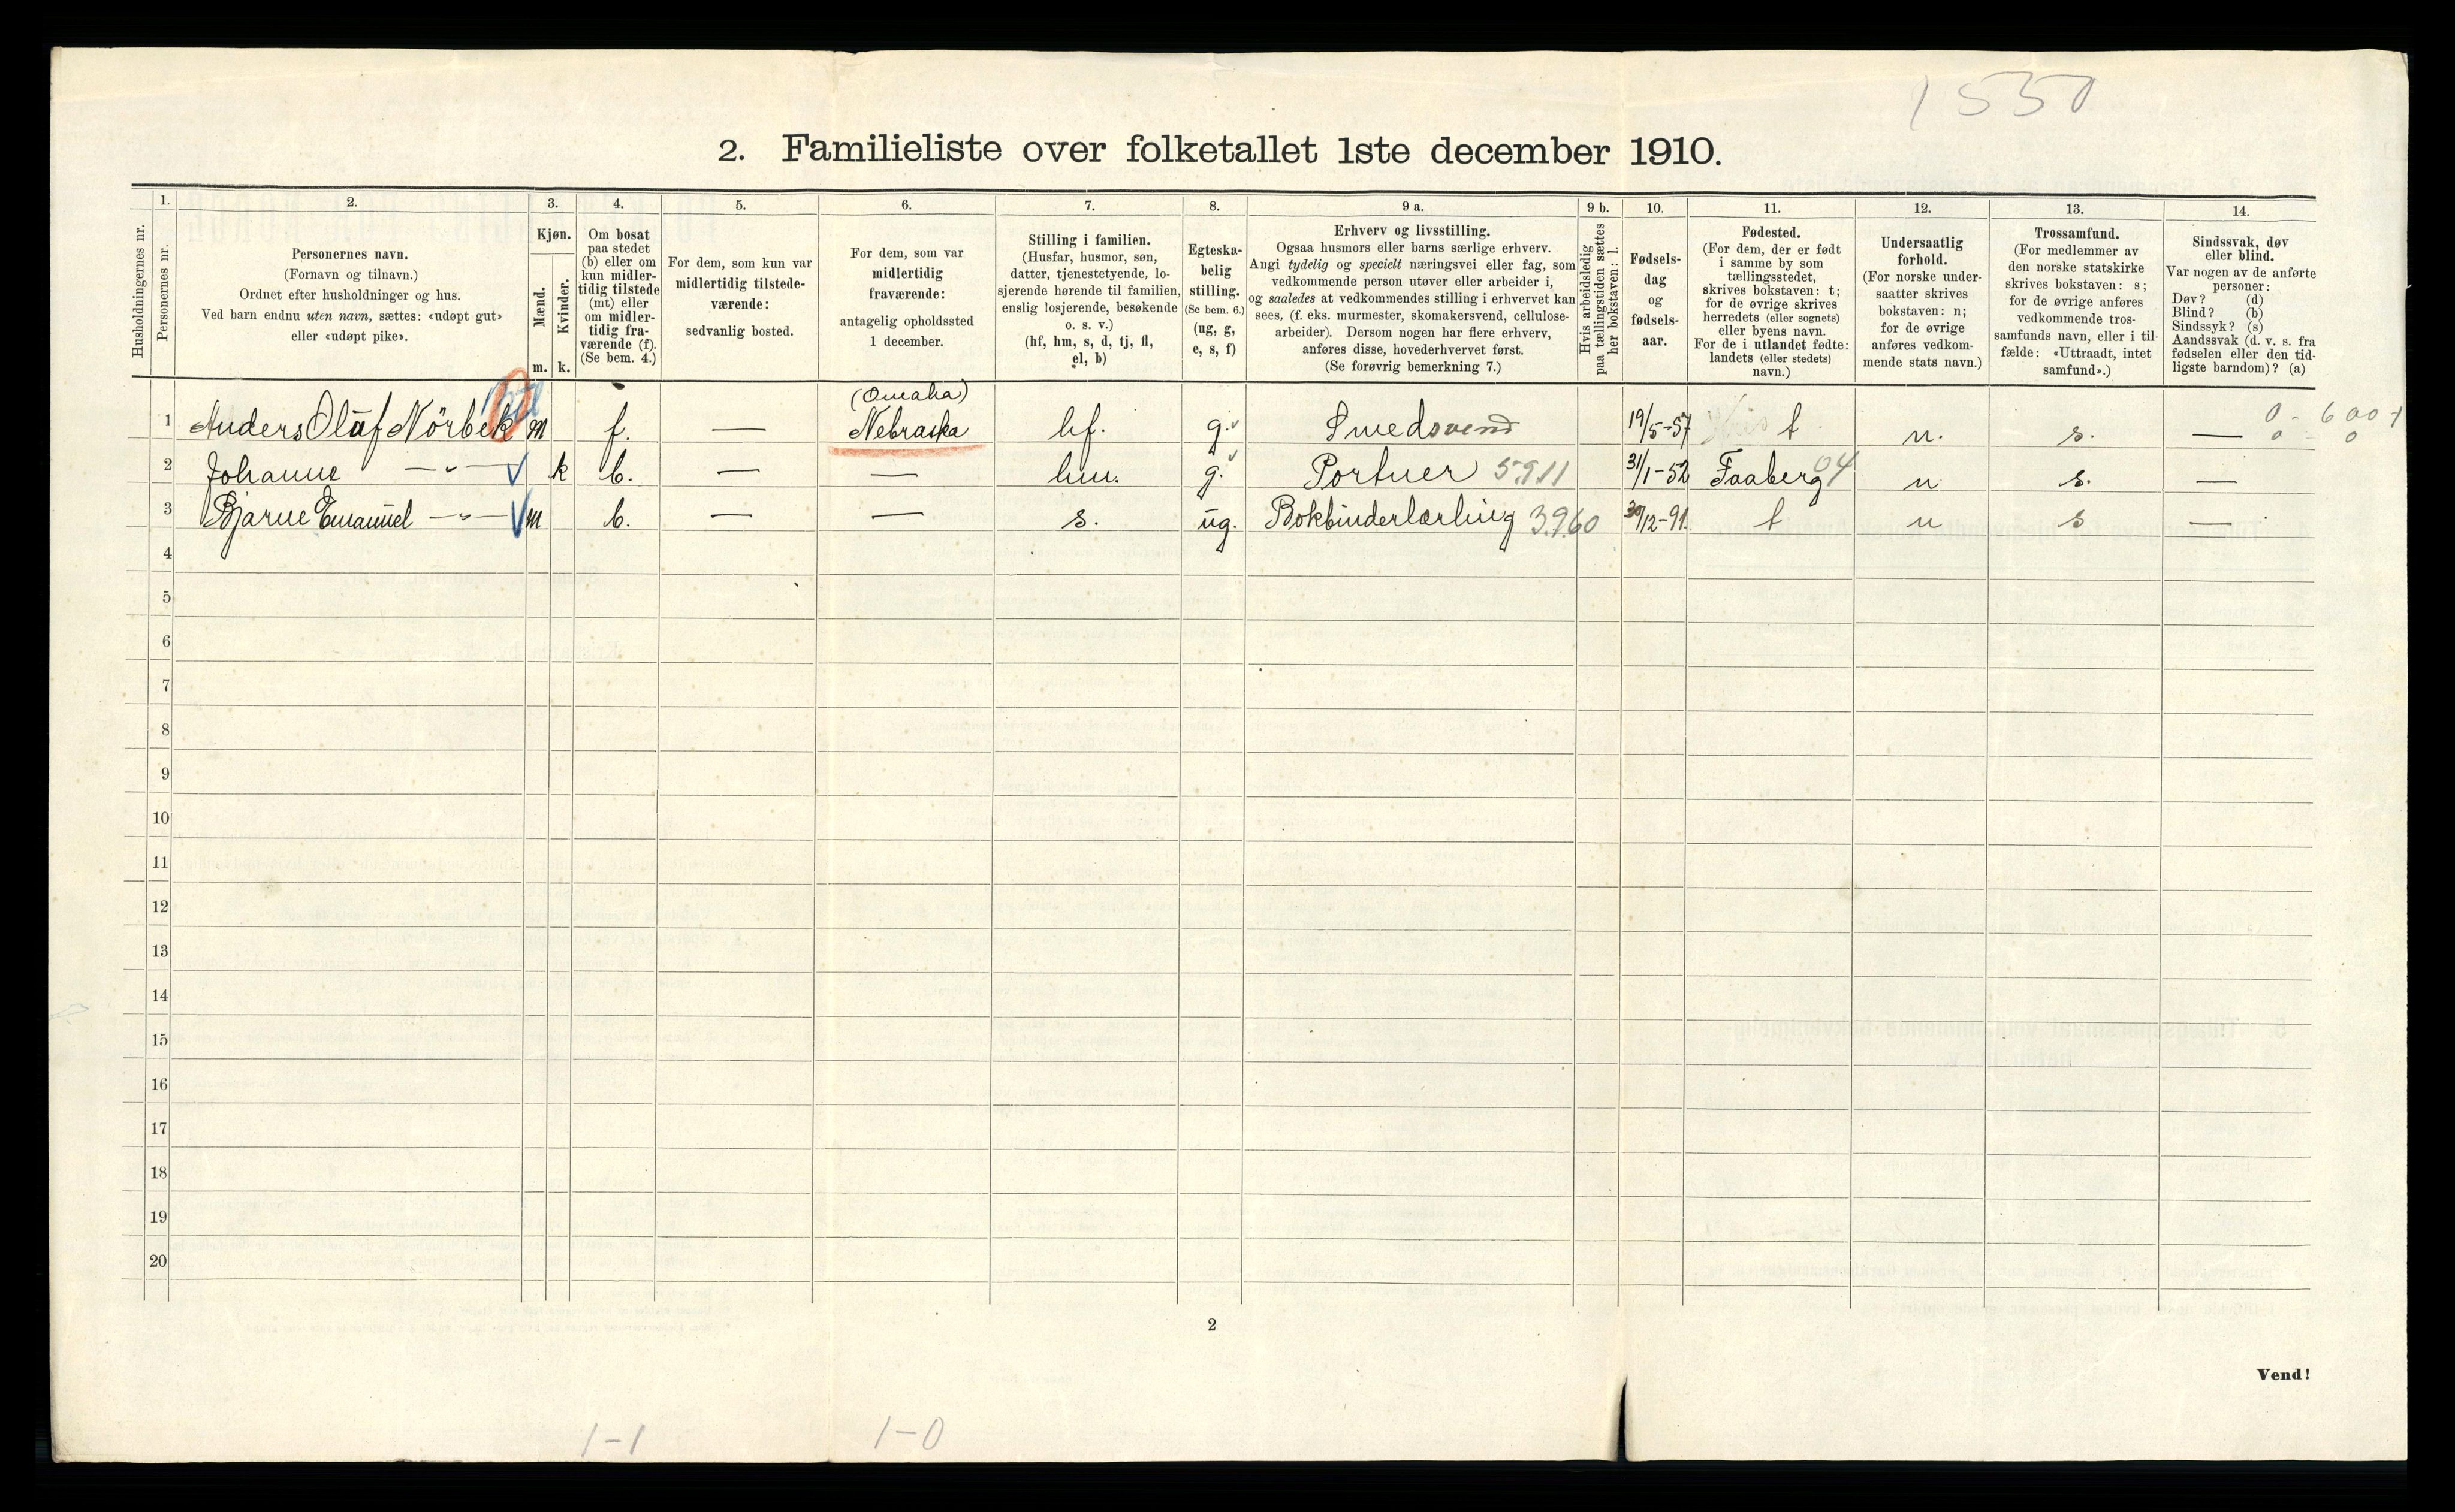 1550
2. Familieliste over folketallet 1ste december 1910.
Husholdningernes nr.
1.
Personernes nr.
2.
Personernes navn.
(Fornavn og tilnavn.)
Ordnet efter husholdninger og hus.
Ved barn endnu uten navn, sættes: «udøpt gut»
eller «udøpt pike».
3.
Kjøn.
Mænd.
Kvinder.
m. k.
4.
Om bosat
paa stedet
(b) eller om
kun midler-
tidig tilstede
(mt) eller
om midler-
tidig fra-
værende (f).
(Se bem. 4.)
5.
For dem, som kun var
midlertidig tilstede-
værende:
sedvanlig bosted.
6.
For dem, som var
midlertidig
fraværende:
antagelig opholdssted
1 december.
7.
Stilling i familien.
(Husfar, husmor, søn,
datter, tjenestetyende, lo-
sjerende hørende til familien,
enslig losjerende, besøkende
o. s. v.)
(hf, hm, s, d, tj, fl,
el, b)
8.
Egteska-
belig
stilling.
(Se bem. 6.)
(ug, g,
e, s, f)
9 a.
Erhverv og livsstilling.
Ogsaa husmors eller barns særlige erhverv.
Angi tydelig og specielt næringsvei eller fag, som
vedkommende person utøver eller arbeider i,
og saaledes at vedkommendes stilling i erhvervet kan
sees, (f. eks. murmester, skomakersvend, cellulose-
arbeider). Dersom nogen har flere erhverv,
anføres disse, hovederhvervet først.
(Se forøvrig bemerkning 7.)
9 b.
Hvis arbeidsledig
paa tællingstiden sættes
her bokstaven: l.
10.
Fødsels-
dag
og
fødsels-
aar.
11.
Fødested.
(For dem, der er født
i samme by som
tællingsstedet,
skrives bokstaven: t;
for de øvrige skrives
herredets (eller sognets)
eller byens navn.
For de i utlandet fødte:
landets (eller stedets)
navn.)
12.
Undersaatlig
forhold.
(For norske under-
saatter skrives
bokstaven: n;
for de øvrige
anføres vedkom-
mende stats navn.)
13.
Trossamfund.
(For medlemmer av
den norske statskirke
skrives bokstaven: s;
for de øvrige anføres
vedkommende tros-
samfunds navn, eller i til-
fælde: «Uttraadt, intet
samfund».)
14.
Sindssvak, døv
eller blind.
Var nogen av de anførte
personer:
Døv? (d)
Blind? (b)
Sindssyk? (s)
Aandssvak (d. v. s. fra
fødselen eller den tid-
ligste barndom)? (a)
(Omaha) 0 - 600 +
1 Anders Olaf Nörbek m f. — Nebraska hf. g. Smedsvend 19/5-57 t n. s. — 0 0
2 Johanne —„— k b. — — hm. g. Portner 5911 31/1-52 Faaberg 04 n s. —
3 Bjarne Emanuel —„— m b. — — s. ug. Bokbinderlærling 3.9.60 30/12-91. t n s —
4
5
6
7
8
9
10
11
12
13
14
15
16
17
18
19
20
2
Vend!
1-1 1-0